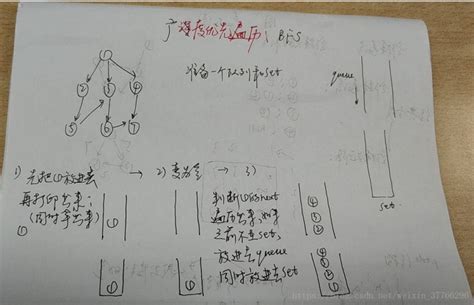 广度优先遍历: BFS
准备一个队列和set
queue
set
1
2
3
4
5
6
7
1) 先把①放进去
再打印出来;
(同时拿出来)
①
①
①
→ 2) 变为空
①
→ 3)
判断①的next
遍历出来, 如果
之前不在set,
放进去queue
同时放进去set
④
③
②
④
③
②
①